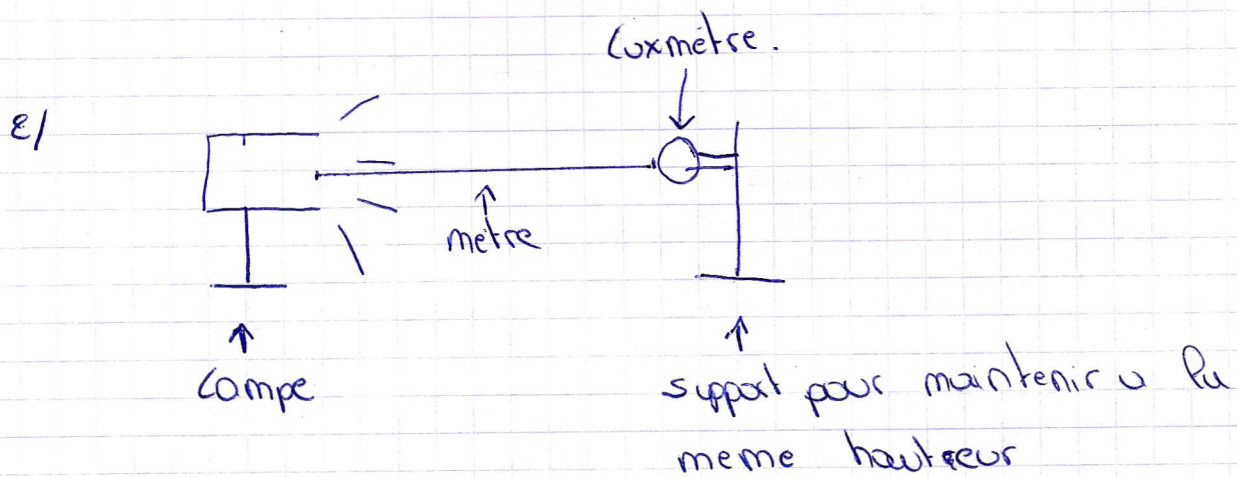 Luxmètre.
2/
mètre
Lampe
support pour maintenir a la
meme hauteur